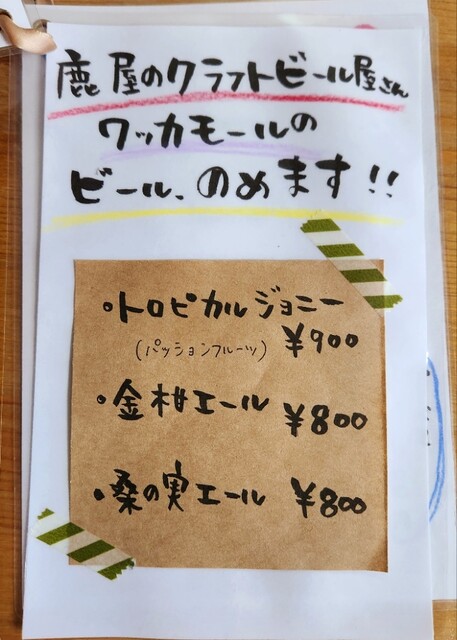 鹿屋のクラフトビール屋さん
ワッカモールの
ビール、のめます!!
・トロピカルジョニー
(パッションフルーツ) ¥900
・金柑エール ¥800
・桑の実エール ¥800